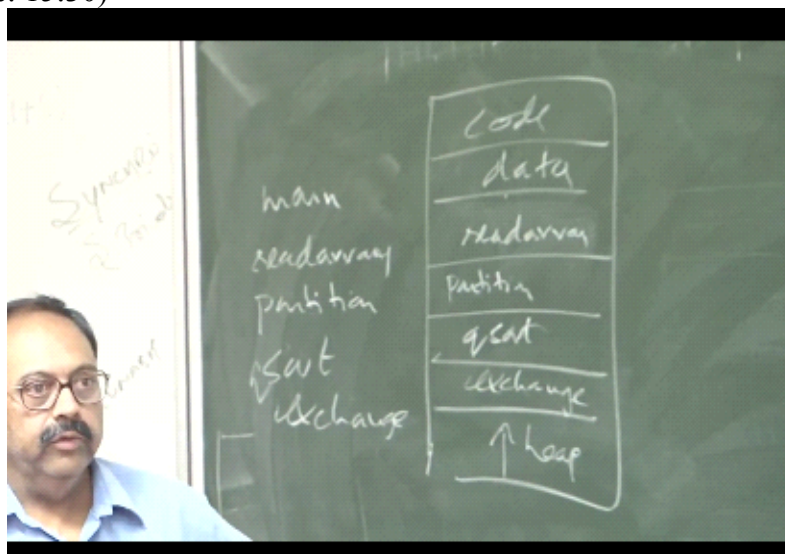 15:50)
main
readarray
partition
qsort
exchange
code
data
readarray
partition
qsort
exchange
↑ heap